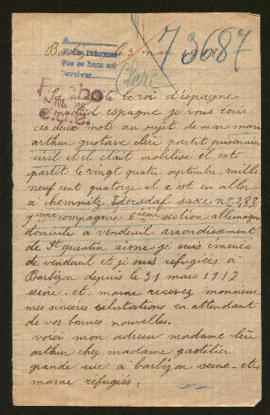 3 mai 1918
73687
Clerc
Ficho
le roi d'espagne
espagne je vous écris
ces deux mots au sujet de mon mari
arthur gustave clerc partit prisonnier
civil et il était mobilisé il est
partit le vingt quatre septembre mille
neuf cent quatorze il est en alle
a chemnitz Edersdof saxe nº 388
9ième compagnie 6ième section allemagne
domicile a vendeuil arrondissement
de St quentin aisne je suis évacués
de vendeuil et je suis refugiées a
Barbizon depuis le 31 mars 1917
seine et marne recevez monsieur
mes sincères salutations en attendant
de vos bonnes nouvelles.
voici mon adresse madame clerc
arthur chez madame gatelier
grande rue a barbizon seine et
marne refugiés,